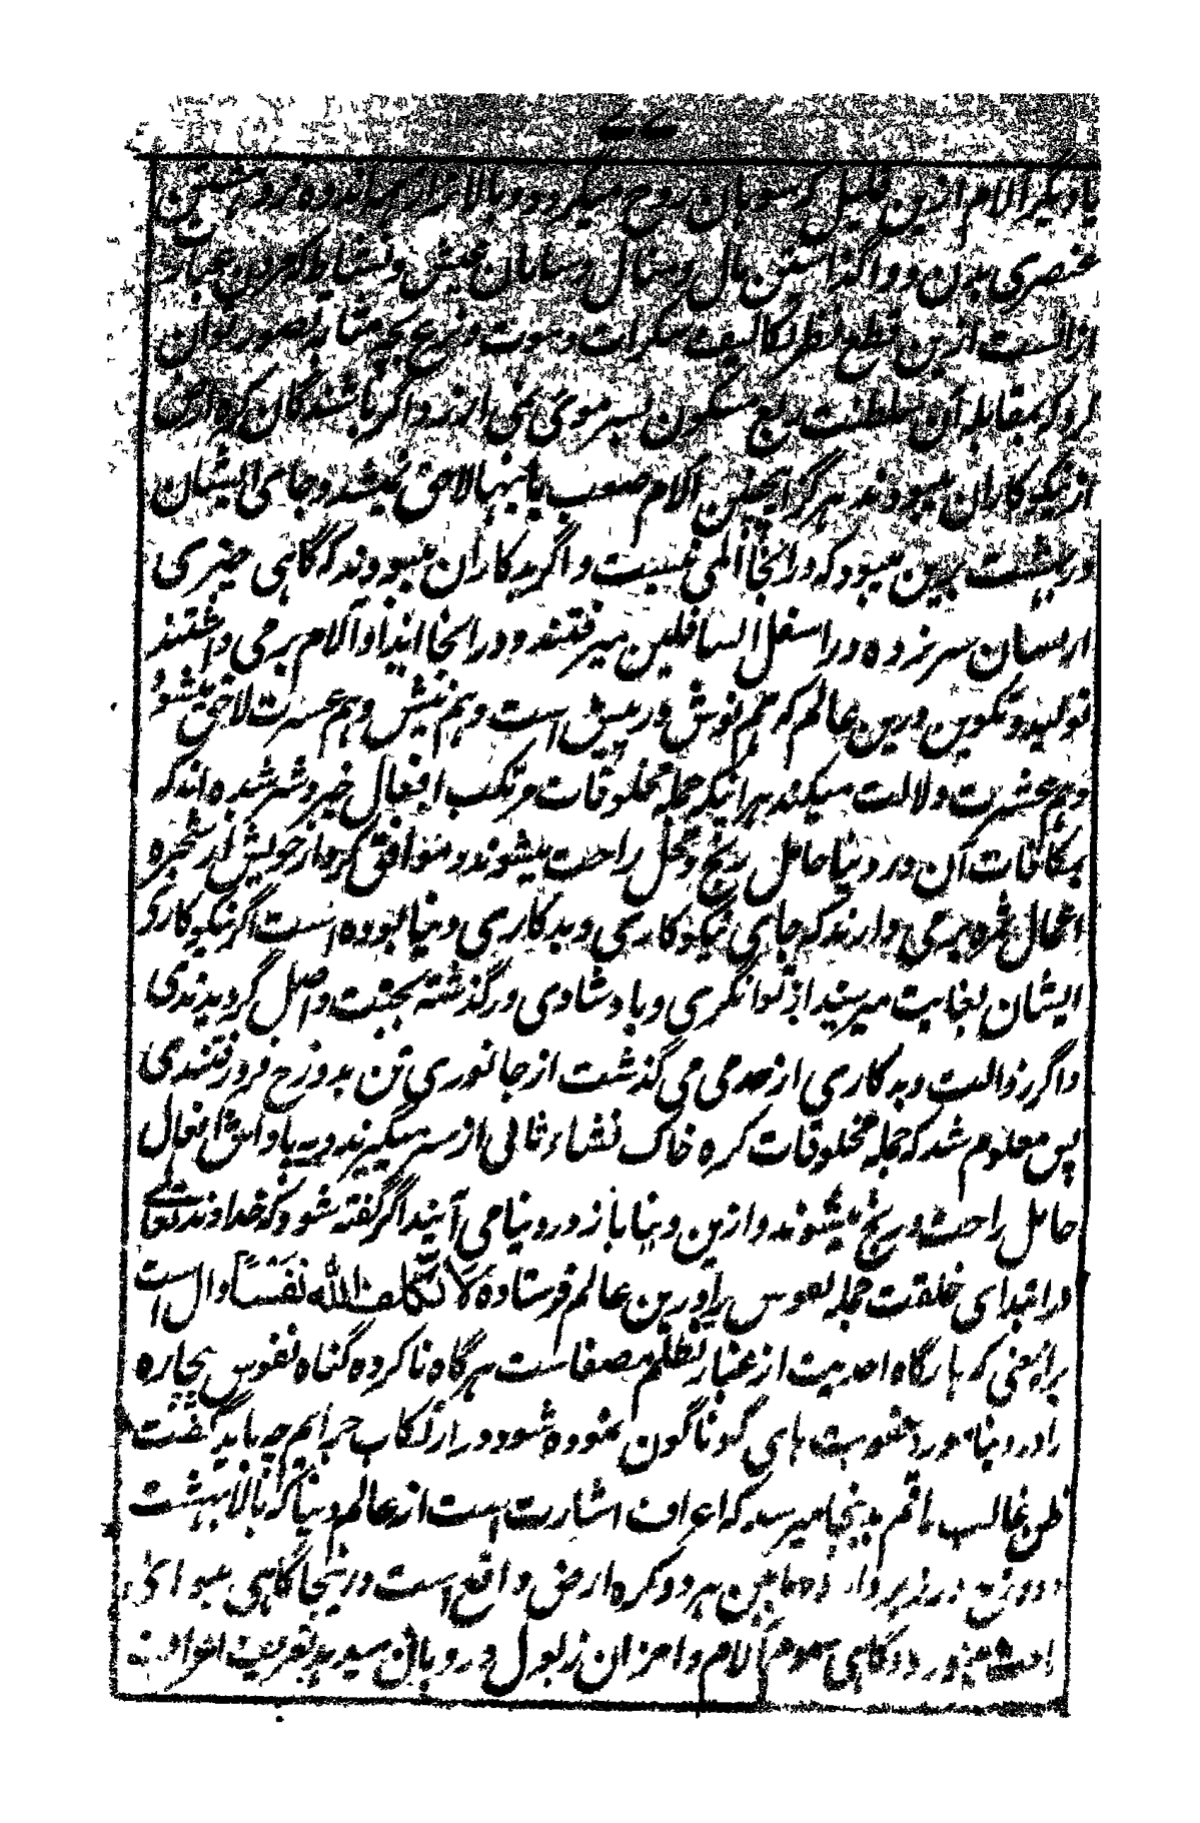 یا دیگر آلام ازین قلیل که سوهان روح میگردد و بالاتر از همه اندوه فرو هشتن
عنصری بدن و واگذاشتن مال و منال و سامان عیش و نشاط که مردن عبارت
از انست ازین قطع نظر تکالیف سکرات و موت و نزع بچه مثابه تصور توان
کرد که بمقابله آن سلطنت ربع مسکون بسر موئی نمی ارزد و اگر باشندگان کره ارض
از نیکوکاران میبودند هرگز اینچنین آلام صعب باینها لاحق نمیشد و جای ایشان
در بهشت برین میبود که در انجا المی نیست و اگر بدکاران میبودند که گاهی خیری
ازیشان سر نزده در اسفل السافلین میرفتند و در انجا ایذا و آلام بر می داشتند
تولید و تکوین درین عالم که هم نوش در پیش است و هم نیش و هم عسرت لاحق میشود
و هم عشرت دلالت میکند بر اینکه جمله مخلوقات مرتکب افعال خیر و شر شده اند که
بمکافات آن در دنیا حامل رنج و محل راحت میشوند و موافق کرداز خویش از شجره
اعمال ثمره برمی دارند که جای نیکوکاری و بدکاری دنیا بوده است اگر نیکوکاری
ایشان بغایت میرسید از توانگری و بادشادی درگذشته بجنت واصل گردیدندی
و اگر رذالت و بدکاری از حد می گذشت از جانوری تن بدوزخ فرو رفتندی
پس معلوم شد که جمله مخلوقات کره خاک نشاء ثانی از سر میگیرند و به پاداش افعال
حامل راحت و رنج میشوند و ازین دنیا باز در دنیا می آیند اگر گفته شود که خداوند تعالی
در ابتدای خلقت جمله نفوس را درین عالم فرستاده لَا تُكَلِّفُ اللّٰه نَفْسًا دال است
براینمعنی که بارگاه احدیت از غبار تظلم مصفاست هرگاه ناکرده گناه نفوس بیچاره
را در دنیا مورد عقوبت های گوناگون نموده شود در ارتکاب جرایم چه باید گفت
ظن غالب راقم بدینجا میرسد که اعراف اشارت است از عالم دنیا که بالا بهشت
و دوزخ مابین هر دو کره ارض واقع است درینجا گاهی هوای
و گاهی سموم آلام و احزان